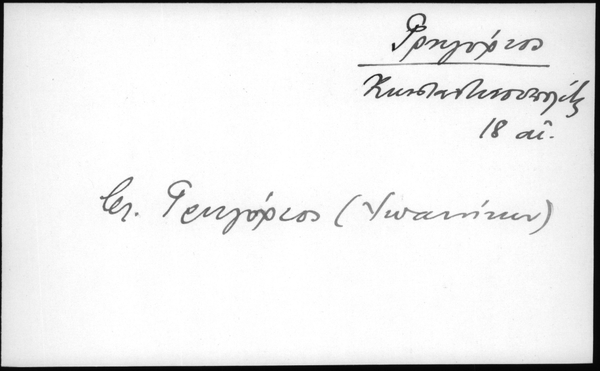 Γρηγόριος
Κωνσταντινουπολίτης
18 αἰ.
βλ. Γρηγόριος (Ἰωαννίκιος)